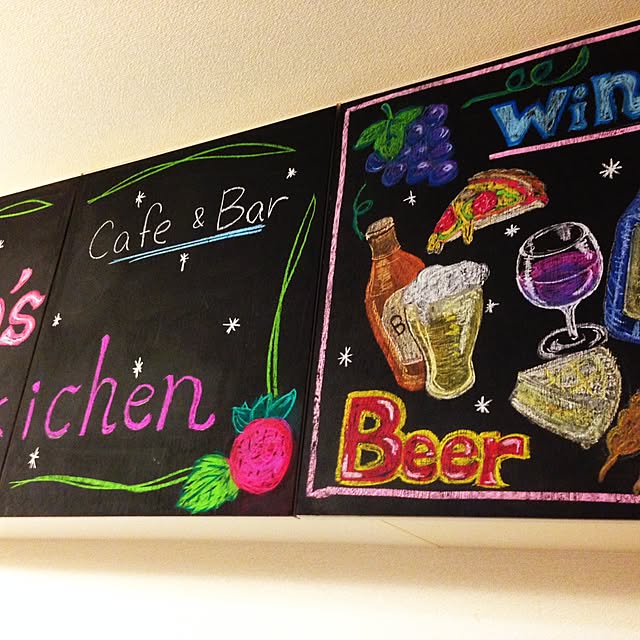 Cafe & Bar
's
kichen
Win
Beer
B